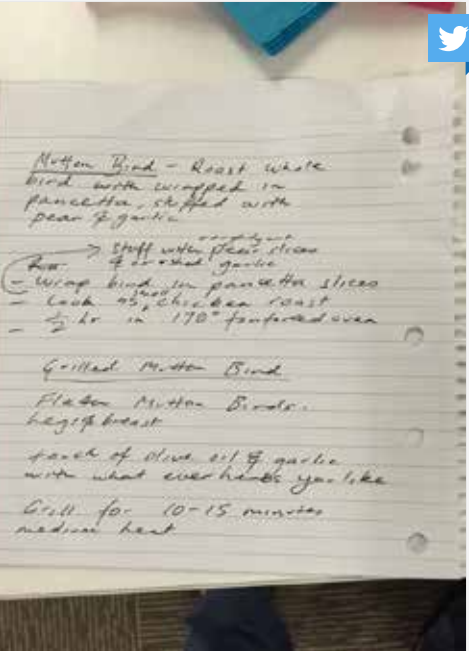 Mutton Bird - Roast whole
bird with wrapped in
pancetta, stuffed with
pear & garlic
> stuff with pear slices
& crushed garlic
- Wrap bird in pancetta slices
- Cook as small chicken roast
- 1/2 hr in 170° fanforced oven
Grilled Mutton Bird
Flatten Mutton Birds.
Legs & breast
touch of olive oil & garlic
with what ever herbs you like
Grill for 10-15 minutes
medium heat